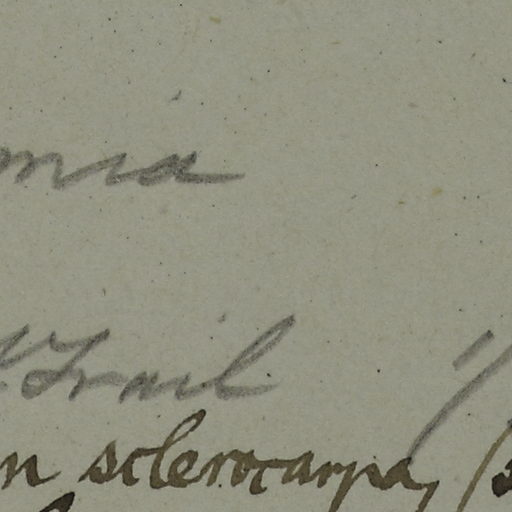 mia
Trail
n sclerocarpa, (s